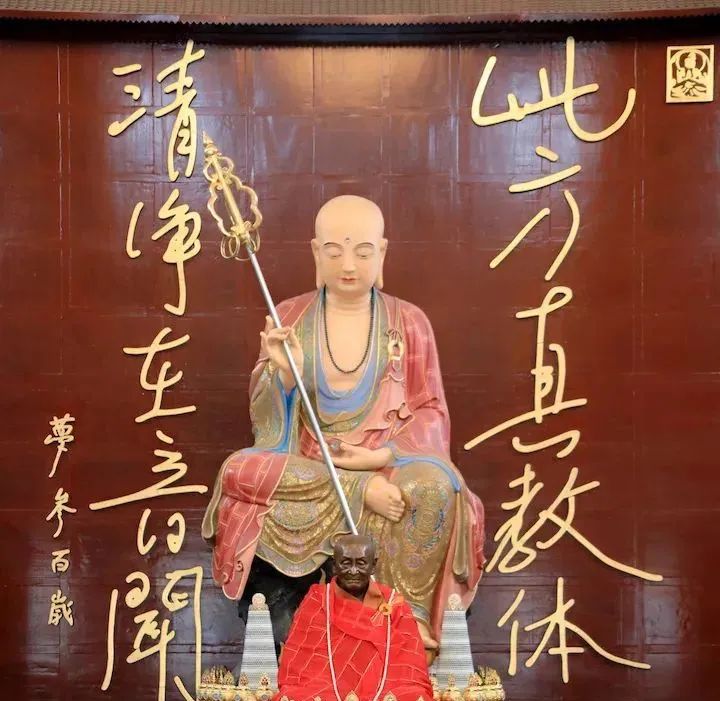 此方真教体
清净在音闻
夢参百歲